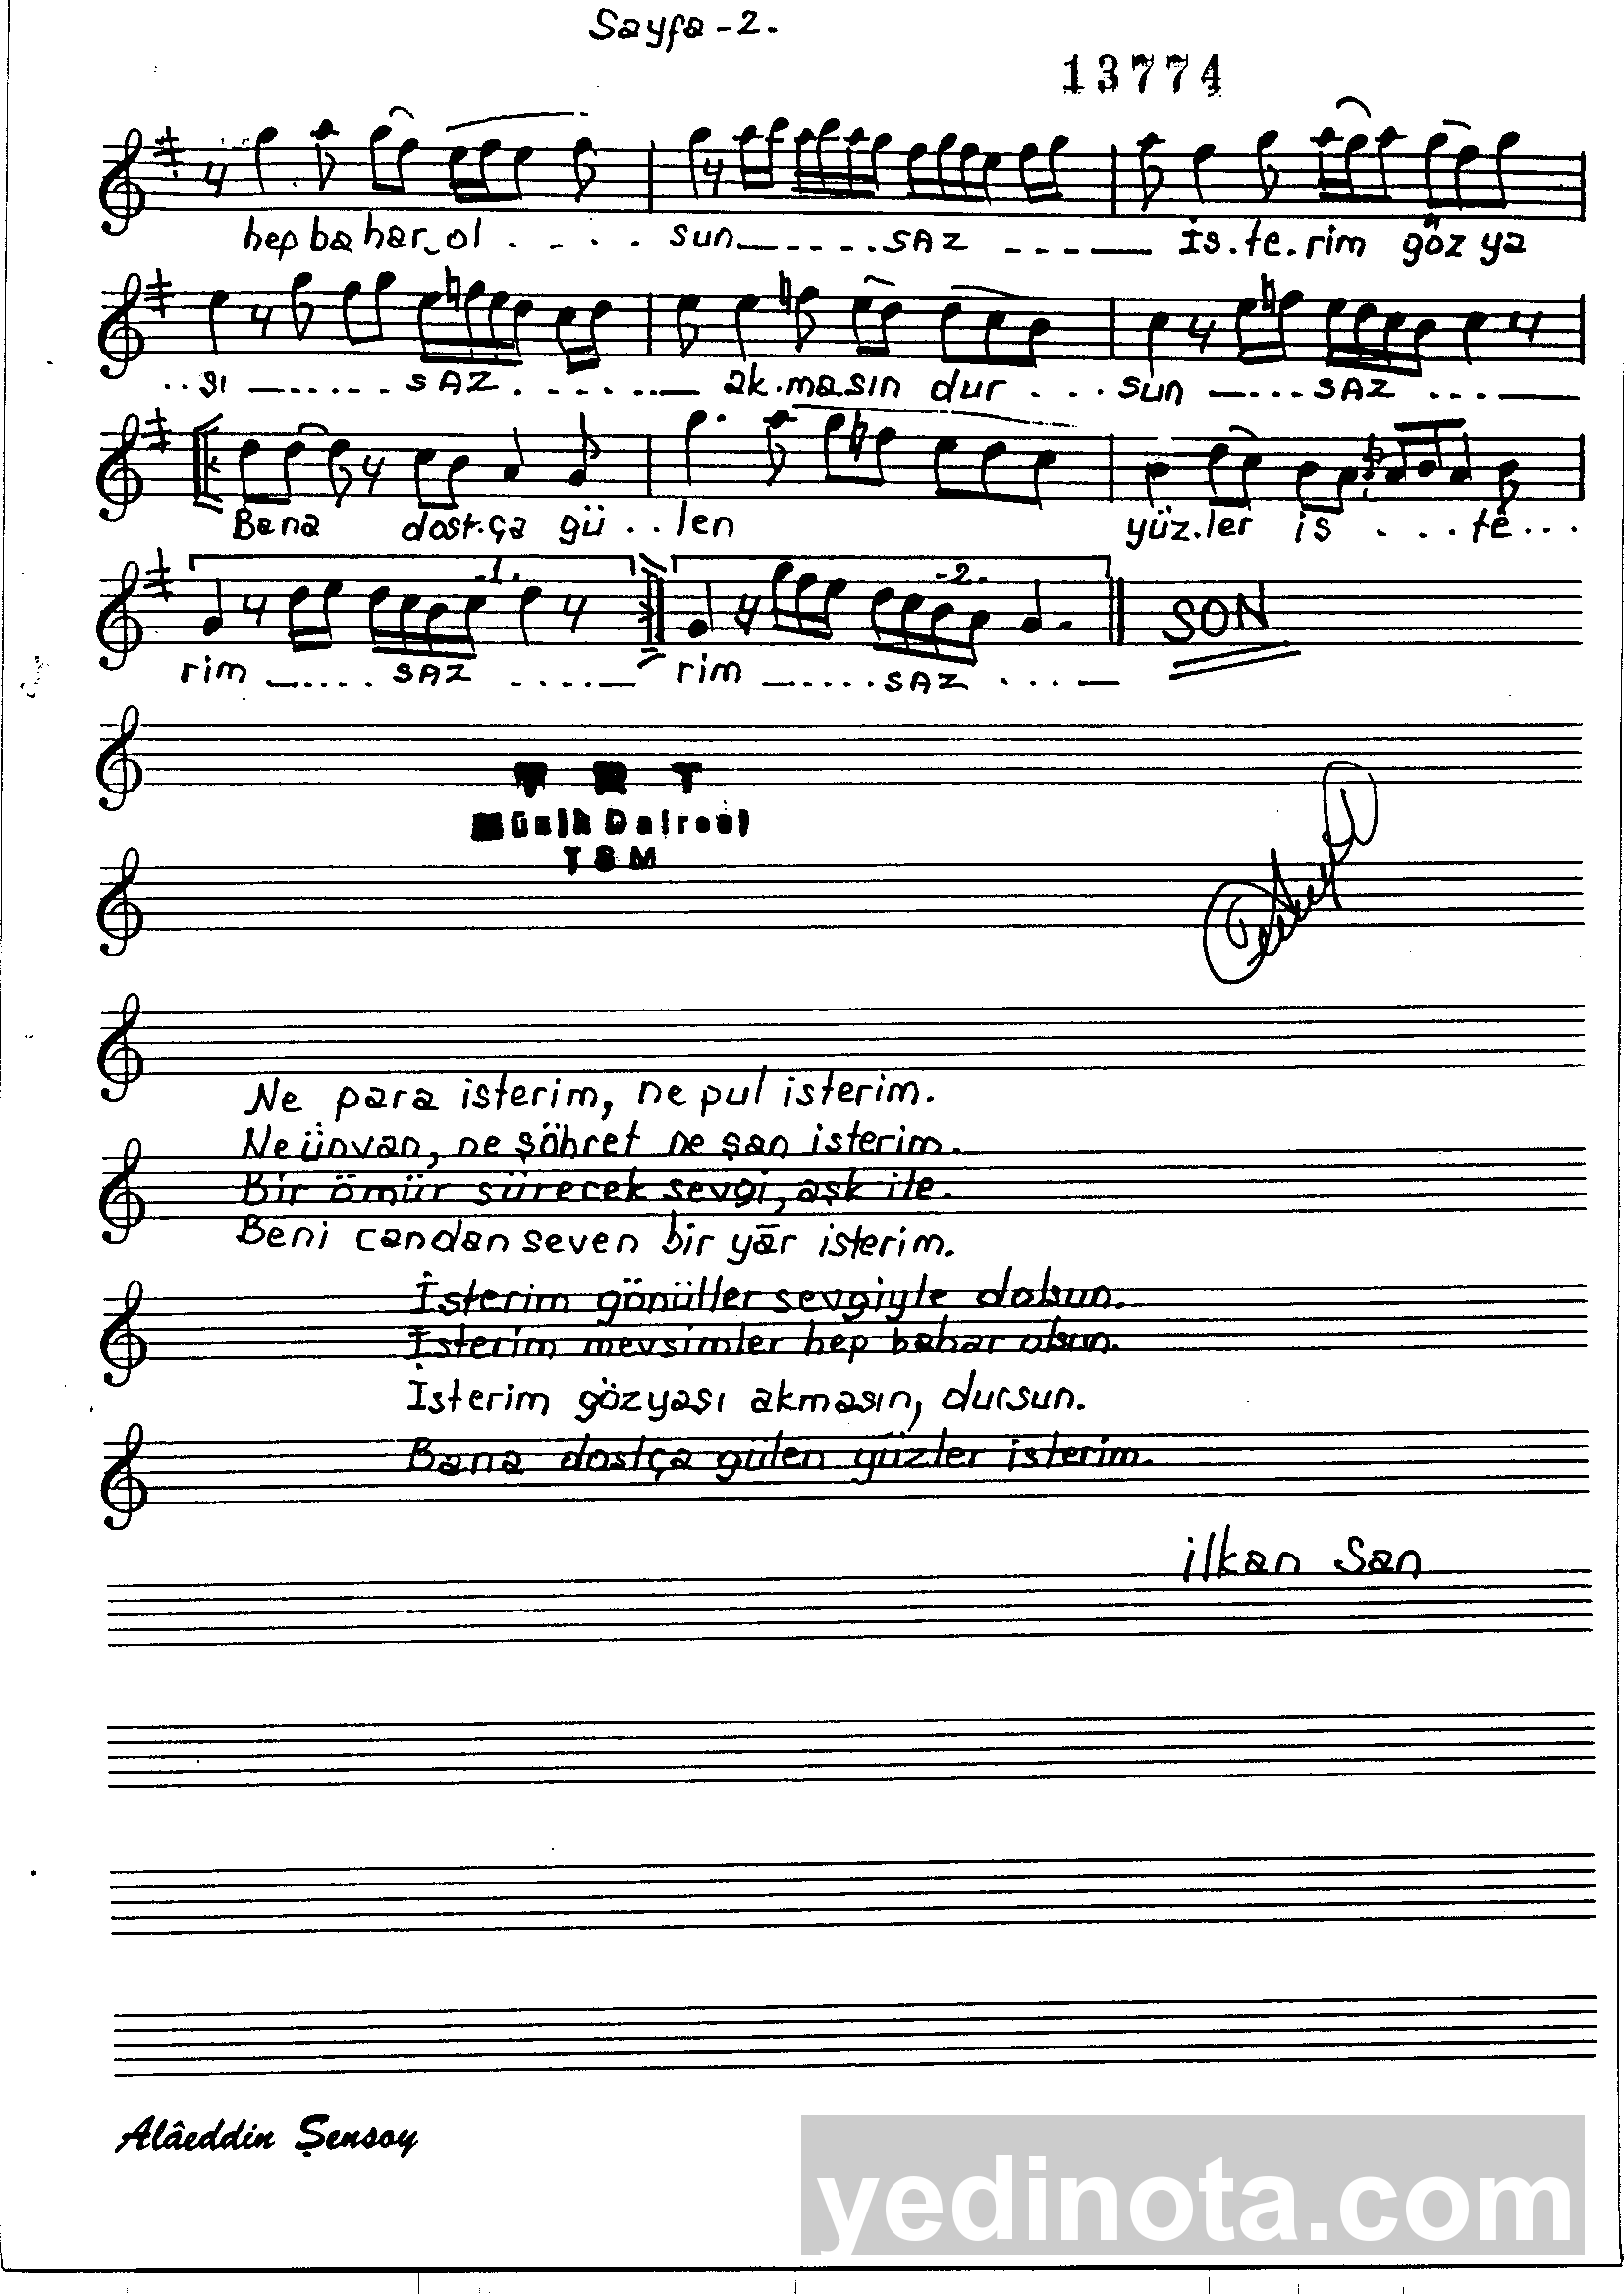 Sayfa-2.
13774
hep ba har ol . . . . . sun_ . . . . . SAZ . . . . _ İs.te.rim göz ya
. . şı _ . . . . . SAZ . . . . . . _ ak.ma.sın dur . . . sun _ . . . . SAZ . . . . _
Bana dost.ça gü . . len yüz.ler is . . . . te . . .
-1. -2- SON
rim _ . . . . SAZ . . . . _ rim _ . . . . . SAZ . . . . _
T R T
Müzik Dairesi
T S M
Ne para isterim, ne pul isterim.
Ne ünvan, ne şöhret ne şan isterim.
Bir ömür sürecek sevgi, aşk ile.
Beni candan seven bir yâr isterim.
İsterim gönüller sevgiyle dolsun.
İsterim mevsimler hep bahar olsun.
İsterim gözyaşı akmasın, dursun.
Bana dostça gülen yüzler isterim.
ilkan San
Alâeddin Şensoy
yedinota.com